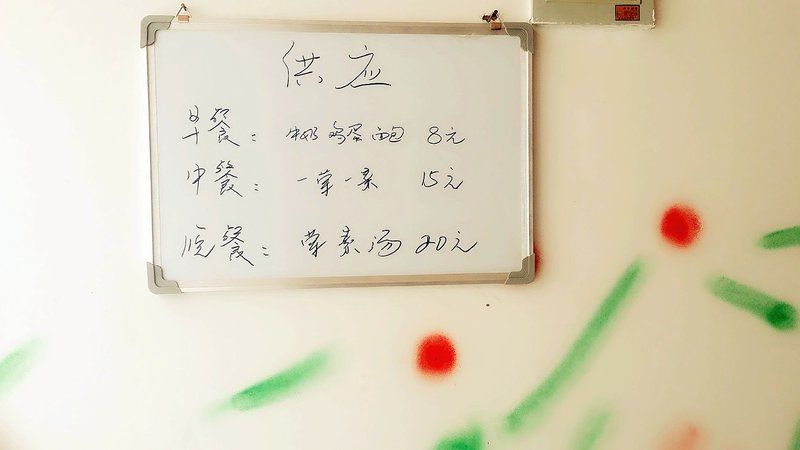 供应
早餐: 牛奶 鸡蛋 面包 8元
中餐: 一荤一素 15元
晚餐: 荤素汤 20元